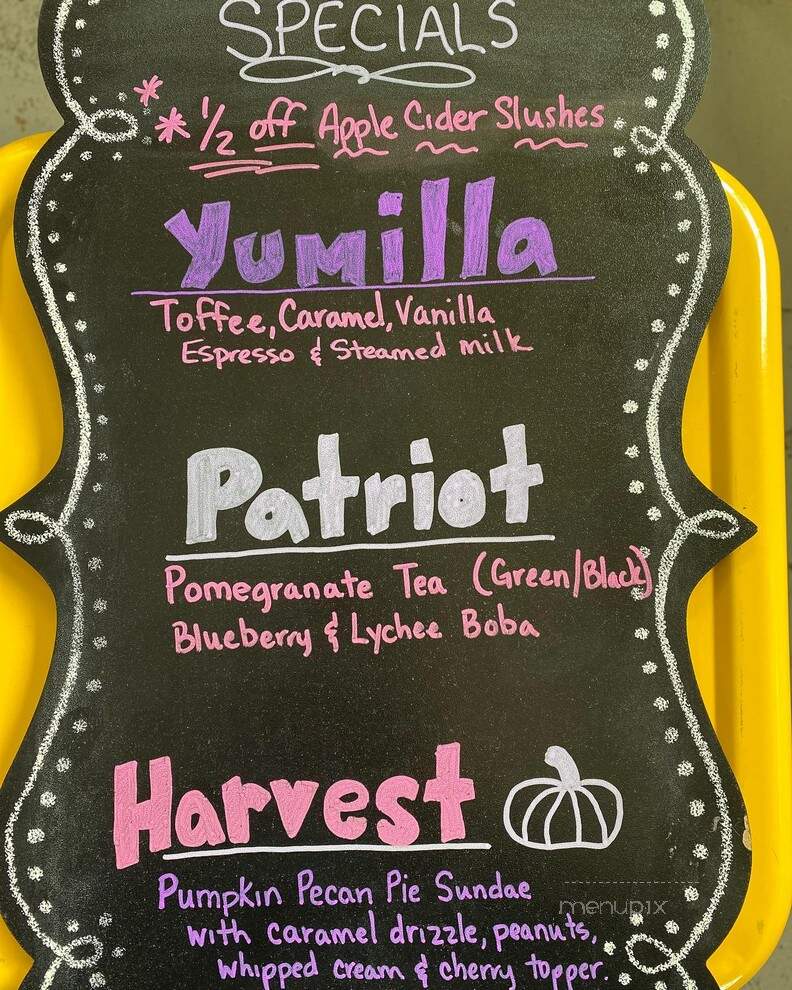 SPECIALS
** 1/2 off Apple Cider Slushes
Yumilla
Toffee, Caramel, Vanilla
Espresso & Steamed milk
Patriot
Pomegranate Tea (Green/Black)
Blueberry & Lychee Boba
Harvest
Pumpkin Pecan Pie Sundae
with caramel drizzle, peanuts,
whipped cream & cherry topper.
menupix